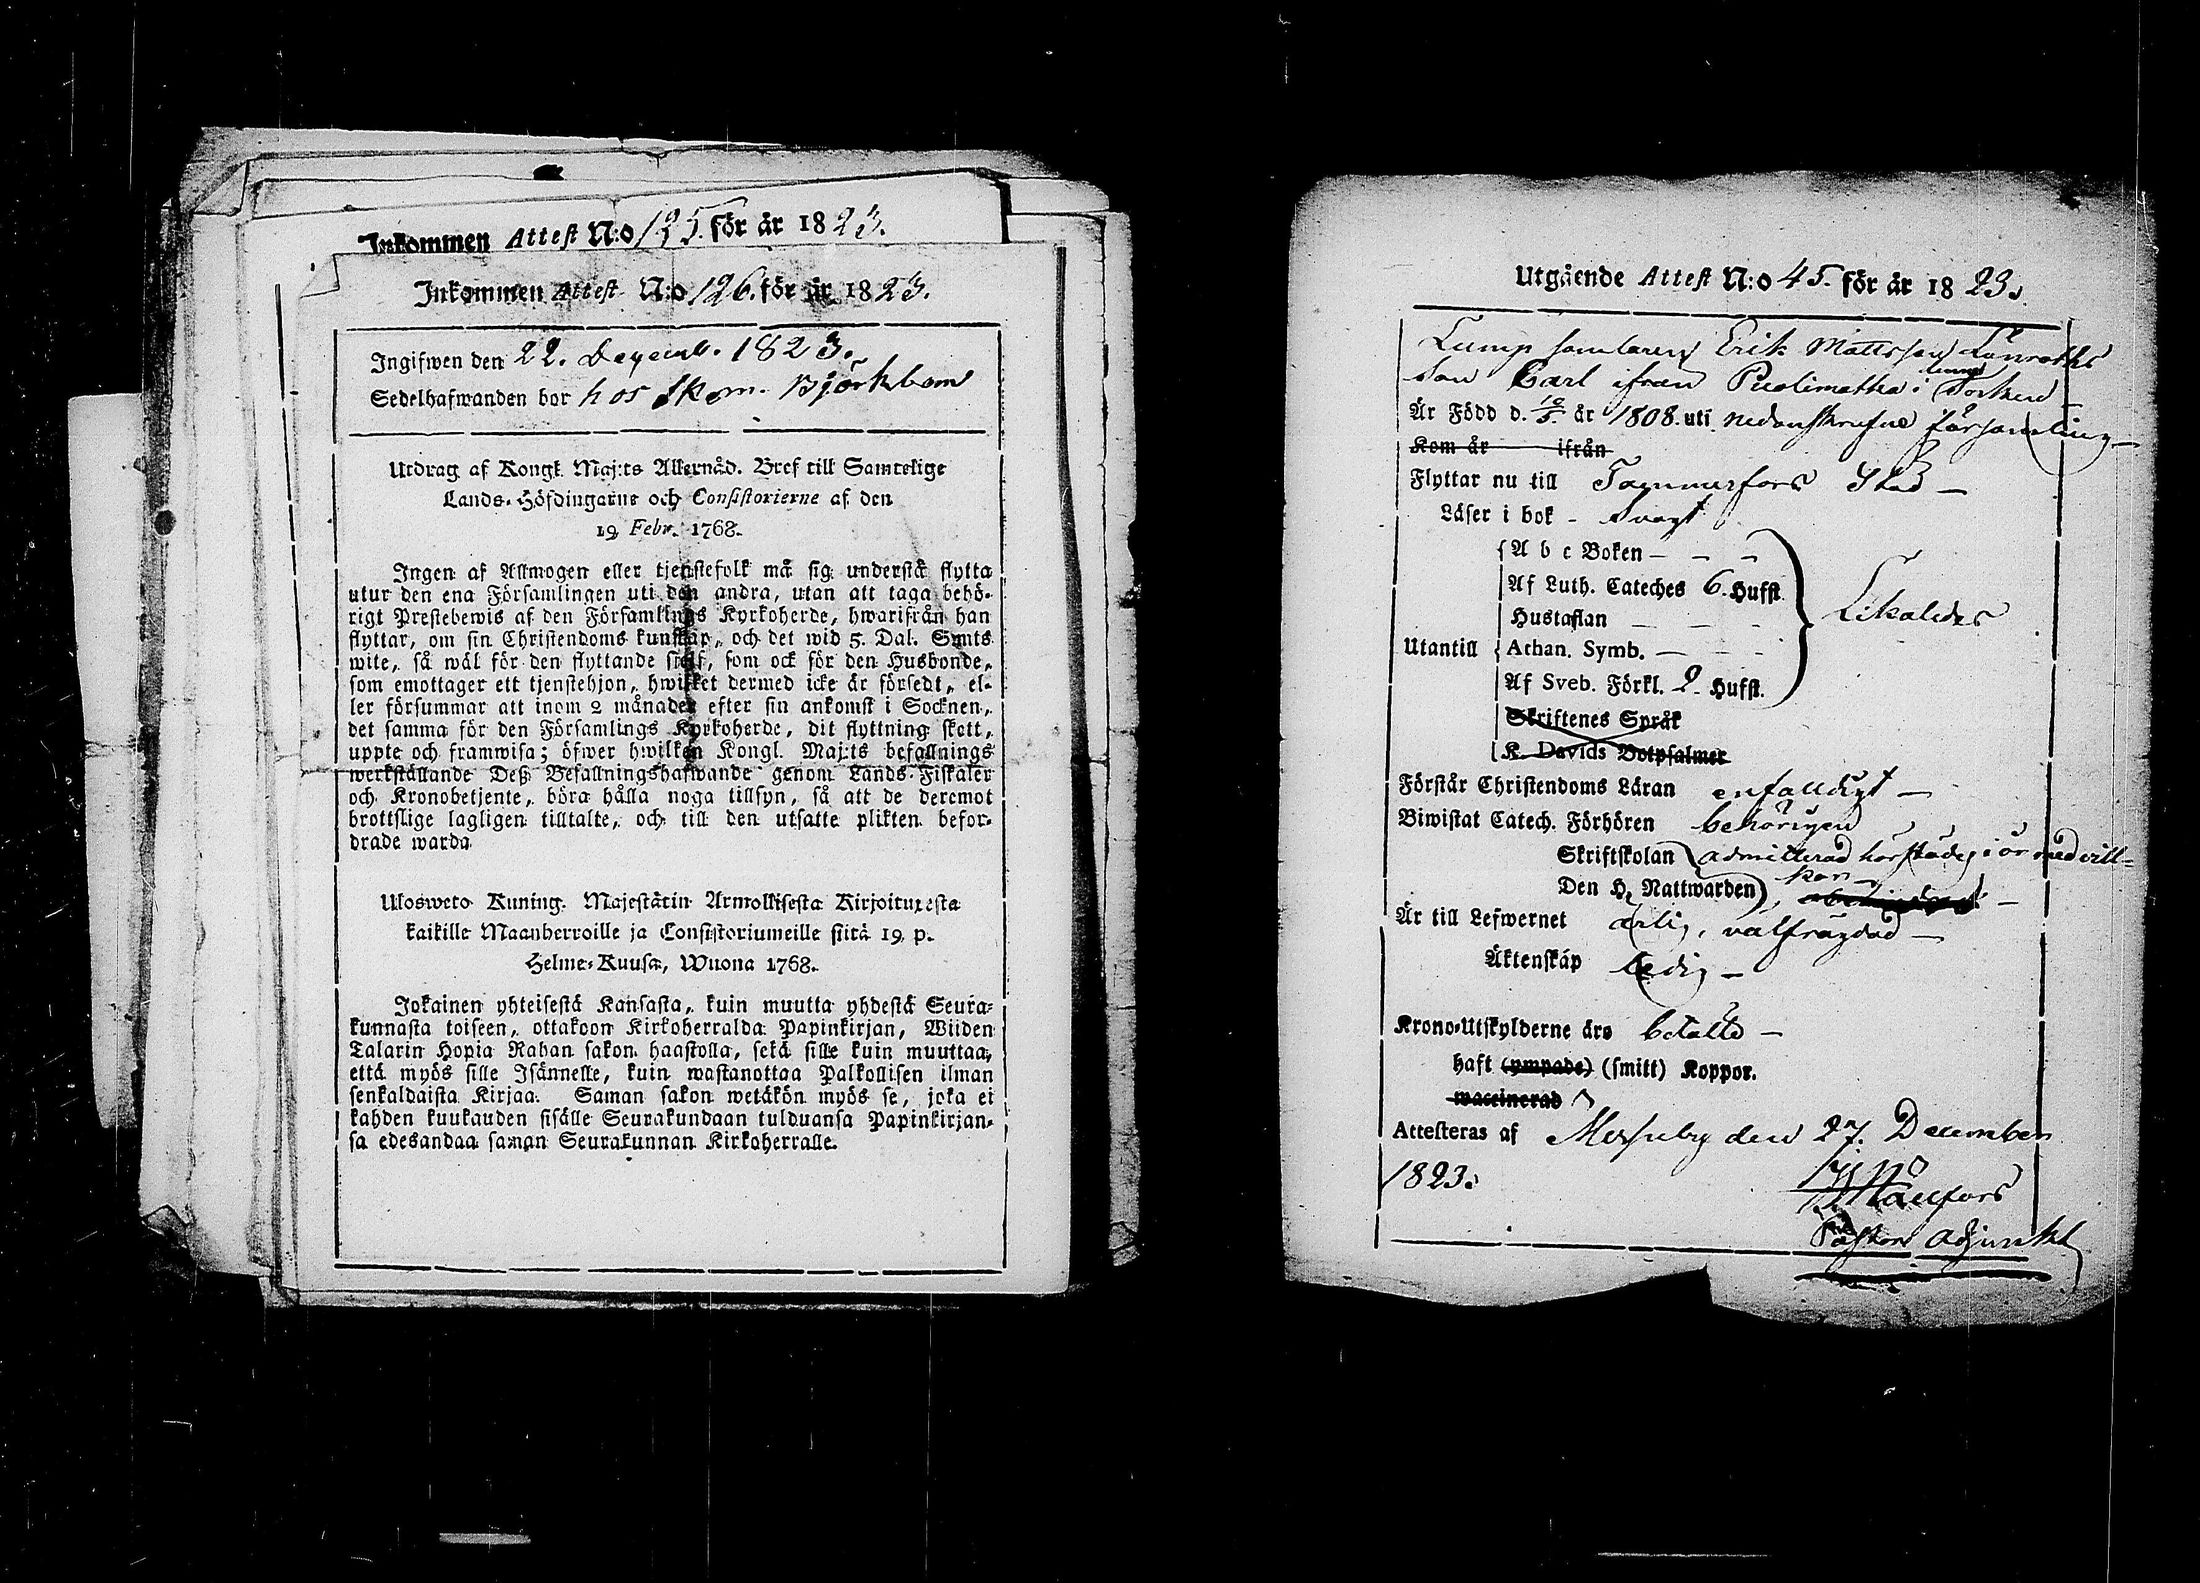 Inkommen Attest N:o 125. för år 1823.
Inkommen Attest N:o 126. för år 1823.
Ingifwen den 22. Decemb. 1823.
Sedelhafwanden bor hos Skom. Björkbom
Utdrag af Kongl. Maj:ts Allernåd. Bref till Samtelige
Lands-Höfdingarne och Consistorierne af den
19 Febr. 1768.
Ingen af Allmogen eller tjenstefolk må sig understå flytta
utur den ena Församlingen uti den andra, utan att taga behö-
rigt Prestebewis af den Församlings Kyrkoherde, hwarifrån han
flyttar, om sin Christendoms kunskap, och det wid 5. Dal. Smts
wite, så wäl för den flyttande sielf, som ock för den Husbonde,
som emottager ett tjenstehjon, hwilket dermed icke är försedt, el-
ler försummar att inom 2 månader efter sin ankomst i Socknen,
det samma för den Församlings Kyrkoherde, dit flyttning skett,
uppte och framwisa; öfwer hwilken Kongl. Maj:ts befallnings
werkställande Deß Befallningshafwande genom Lands-Fiskaler
och Kronobetjente, böra hålla noga tillsyn, så att de deremot
brottslige lagligen tilltalte, och till den utsatte plikten befor-
drade warda
Ulosweto Kuning. Majestätin Armollisesta Kirjoituxesta
kaikille Maanherroille ja Consistoriumeille siitä 19 p.
Helme-Kuusa, Wuona 1768.
Jokainen yhteisestä Kansasta, kuin muutta yhdestä Seura-
kunnasta toiseen, ottakoon Kirkoherralda Papinkirjan, Wiiden
Talarin Hopia Rahan sakon haastolla, sekä sille kuin muuttaa,
että myös sille Isännelle, kuin wastanottaa Palkollisen ilman
senkaldaista Kirjaa. Saman sakon wetäkön myös se, joka ei
kahden kuukauden sisälle Seurakundaan tulduansa Papinkirjan-
sa edesandaa saman Seurakunnan Kirkoherralle.
Utgående Attest N:o 45. för år 1823.
Lump samlaren Erik Mattsson Lönroths
son Carl ifrån Puolimatka i Torken
Är Född d. 10/5. år 1808. uti nedanskrefne församling
Kom år ifrån
Flyttar nu till Tammerfors Stad
Läser i bok svagt
A b c Boken
Af Luth. Cateches 6. Hufst.
Hustaflan
Utantill Athan. Symb.
Af Sveb. Förkl. 2 Hufst.
Likaledes
Skriftenes Språk
K. Davids Botpsalmer
Förstår Christendoms Läran enfalldigt
Biwistat Catech. Förhören behörigen
Skriftskolan admitterad härstädes i år med vill-
kor
Den H. Nattwarden
Är till Lefwernet ärlig, välfrägdad
Äktenskap ledig
Krono-Utskylderne äro betalte
haft (ympade) (smitt) Koppor.
waccinerad
Attesteras af Messuby den 27. December
1823.
Pastors Adjunkt